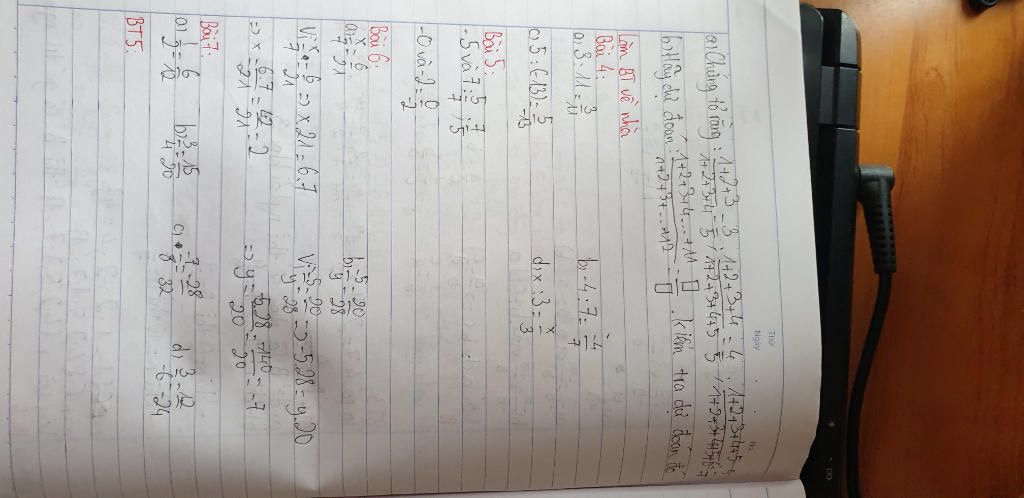 Thứ
Ngày
No.
a) Chứng tỏ rằng: \frac{1+2+3}{1+2+3+4} = \frac{3}{5}; \frac{1+2+3+4}{1+2+3+4+5} = \frac{4}{5}; \frac{1+2+3+4+5}{1+2+3+4+5+6} = \frac{5}{7}
b) Hãy dự đoán: \frac{1+2+3+4...+11}{1+2+3+...+12} = \frac{□}{□}. kiểm tra dự đoán đó
Làm BT về nhà
Bài 4:
a, 3 : 11 = \frac{3}{11} b, -4 : 7 = \frac{-4}{7}
c, 5 : (-13) = \frac{5}{-13} d, x : 3 = \frac{x}{3}
Bài 5:
-5 và 7: \frac{5}{7}; \frac{7}{5}
-0 và -2 = \frac{0}{-2}
Bài 6:
a, \frac{x}{7} = \frac{6}{21} b, \frac{-5}{y} = \frac{20}{28}
Vì \frac{x}{7} = \frac{6}{21} => x 21 = 6.7 Vì \frac{-5}{y} = \frac{20}{28} => -5.28 = y.20
=> x = \frac{6.7}{21} = \frac{42}{21} = 2 => y = \frac{-5.28}{20} = \frac{-140}{20} = -7
Bài 7:
a, \frac{1}{2} = \frac{6}{12} b, \frac{3}{4} = \frac{15}{20} c, \frac{-7}{8} = \frac{-28}{32} d, \frac{3}{-6} = \frac{12}{-24}
BT5: